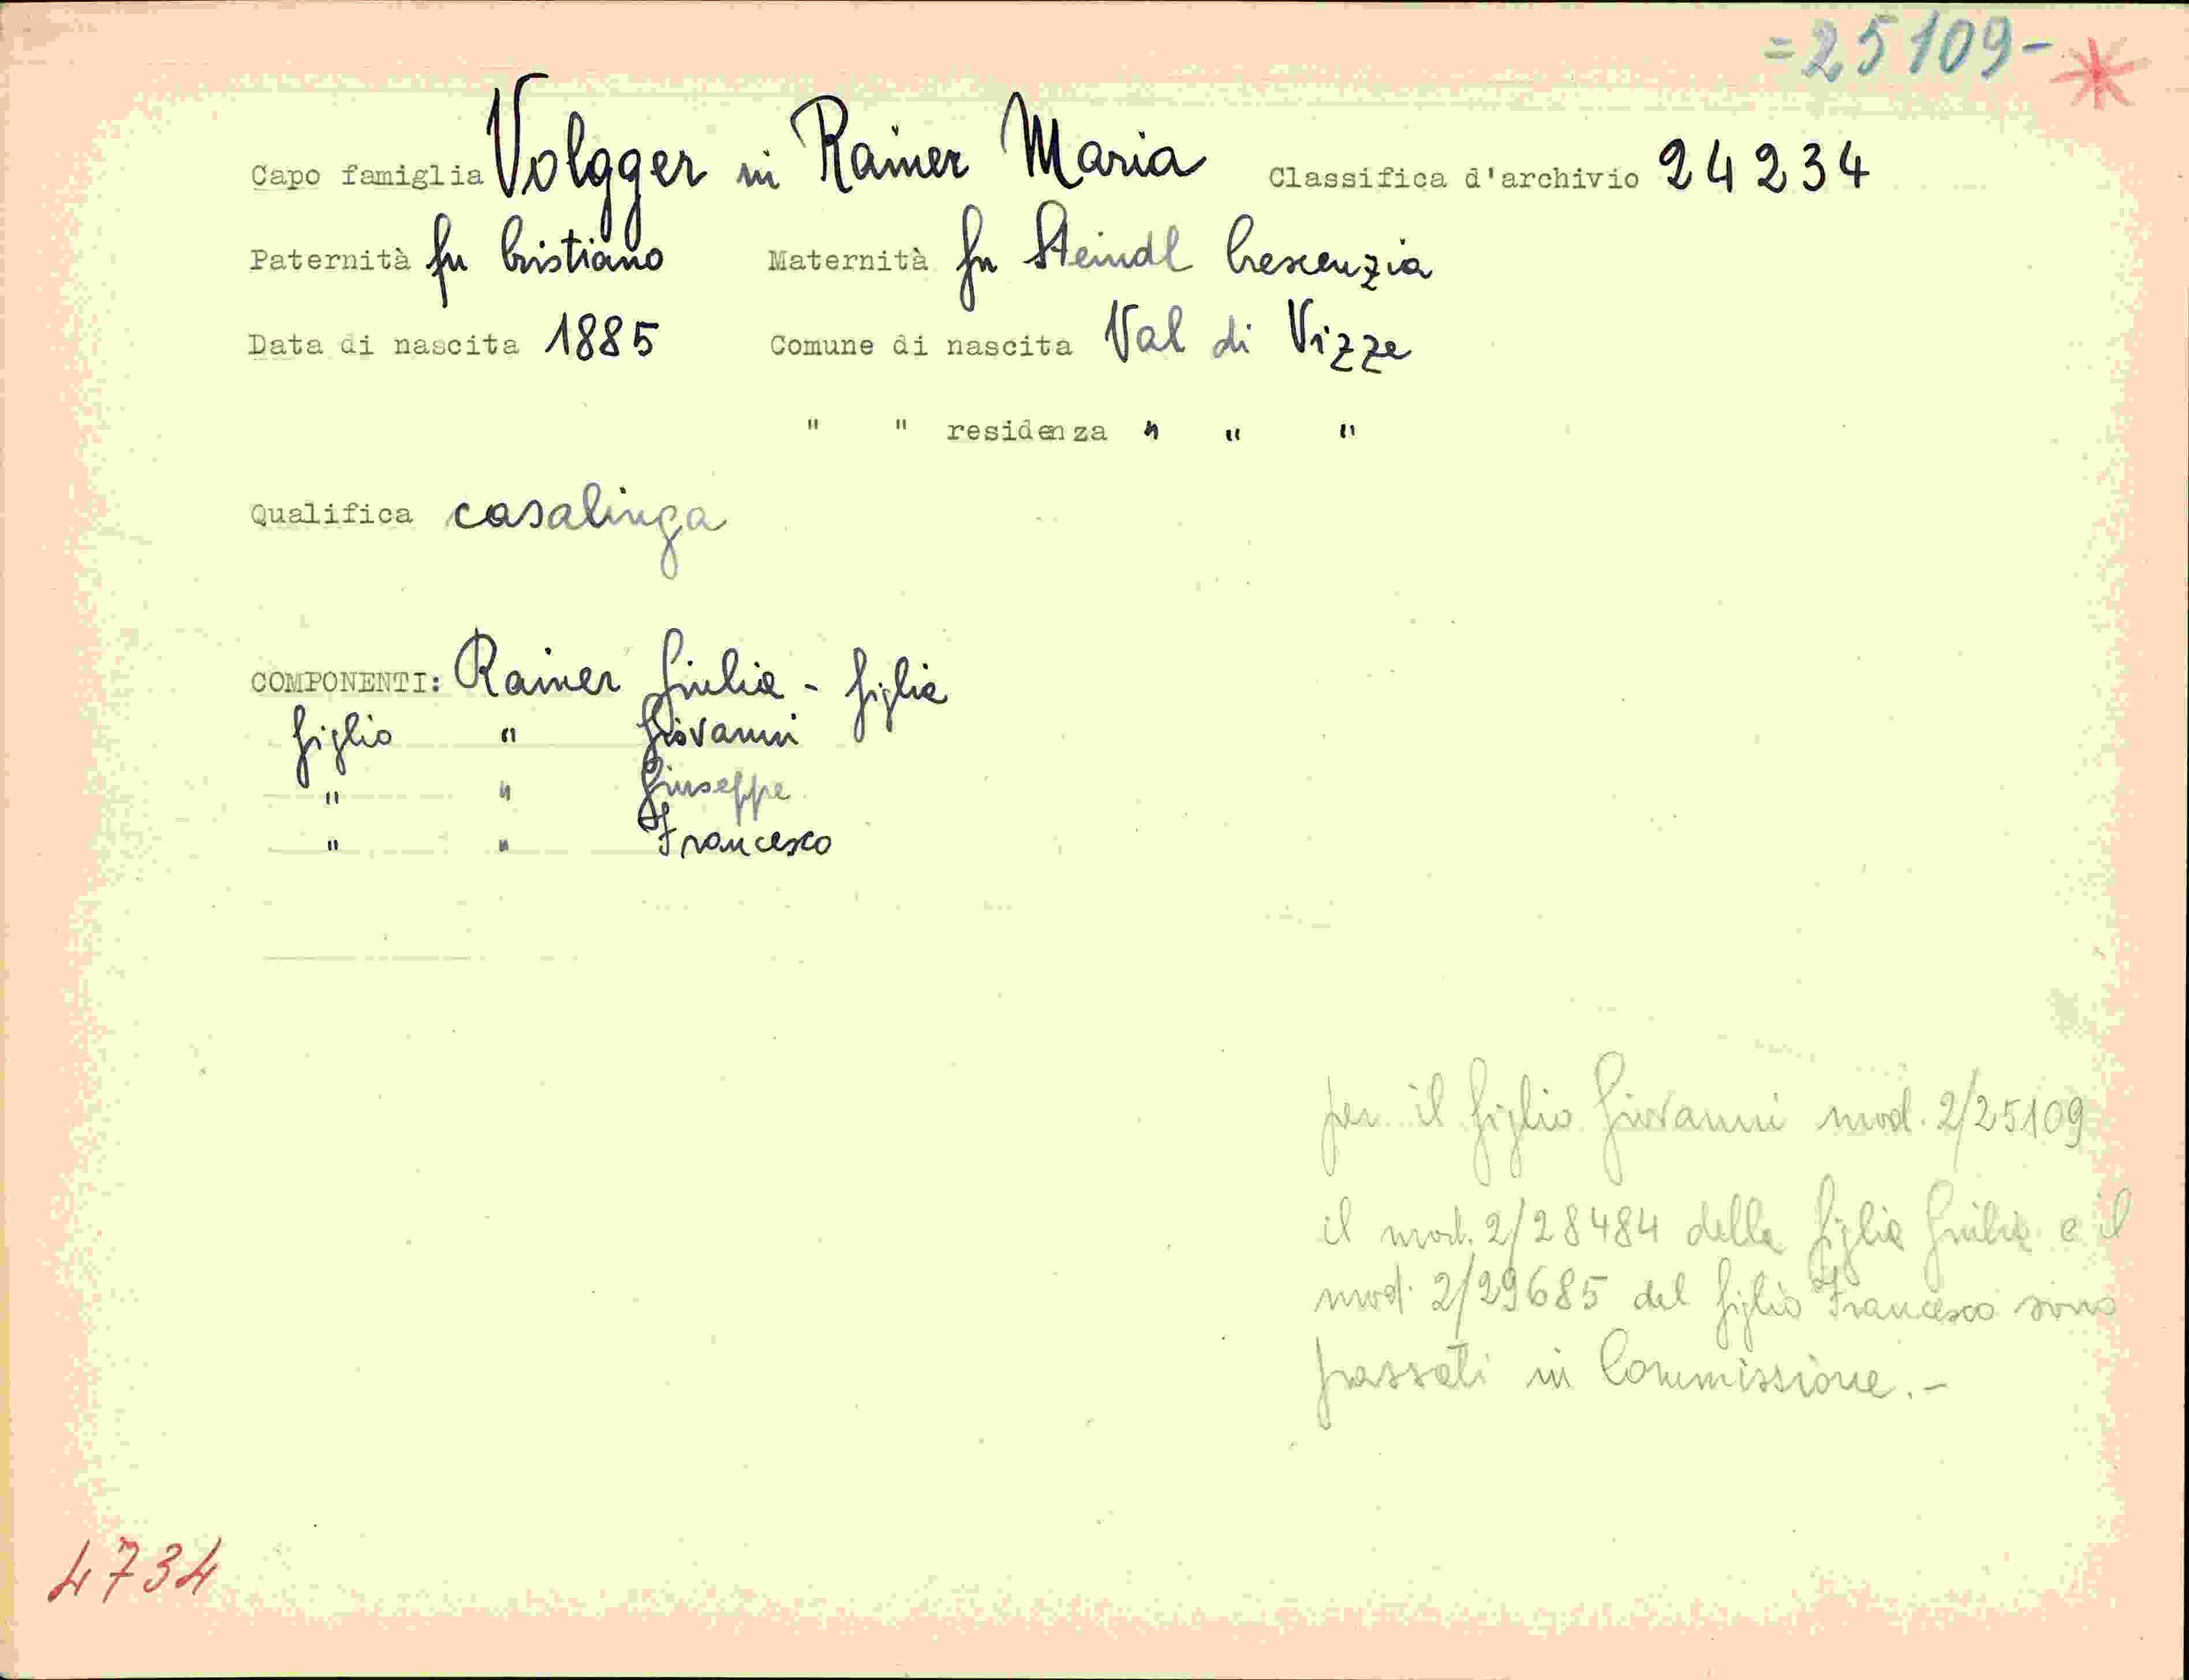 =25109-
Capo famiglia Volgger in Rainer Maria Classifica d'archivio 24234
Paternità fu Cristiano Maternità fu Steindl Crescenzia
Data di nascita 1885 Comune di nascita Val di Vizze
" " residenza " " "
Qualifica casalinga
COMPONENTI: Rainer Giulia - figlia
figlio " Giovanni
" " Giuseppe
" " Francesco
per il figlio Giovanni mod. 2/25109
il mod. 2/28484 della figlia Giulia e il
mod. 2/29685 del figlio Francesco sono
passati in Commissione.-
4734